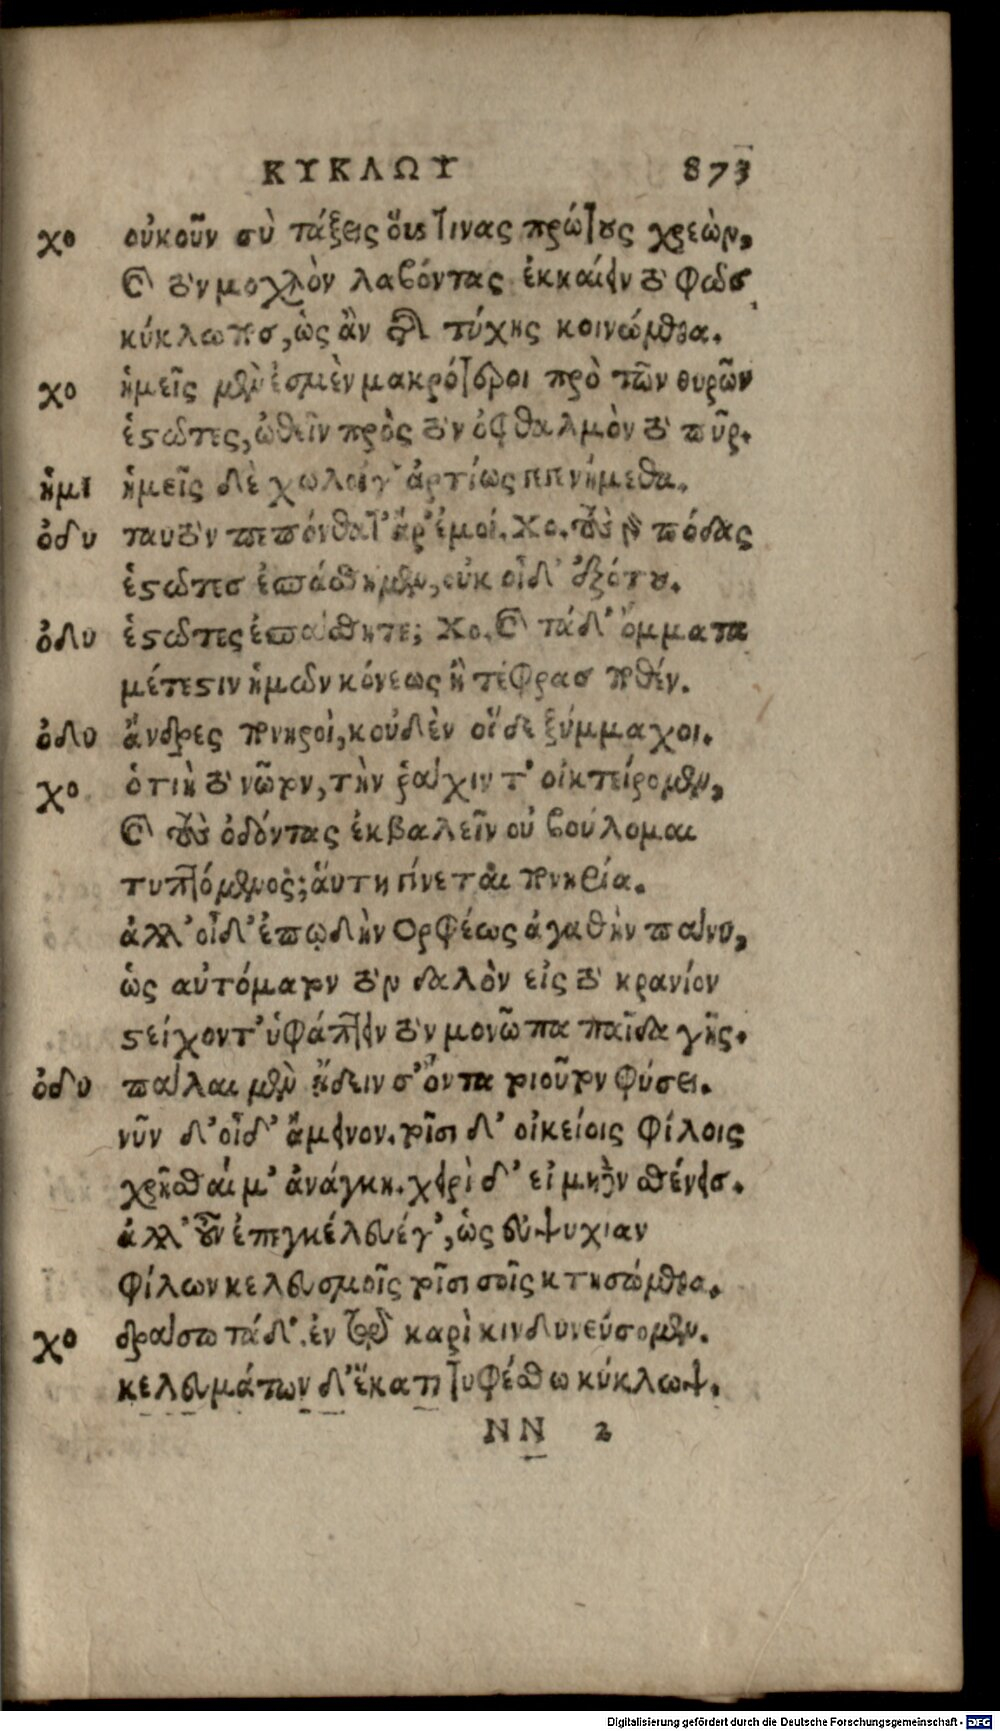 ΚΥΚΛΩΨ 873
χο οὐκοῦν σὺ τάξεις οὕς τινας πρώτους χρεὼν,
καὶ τὸν μοχλὸν λαβόντας ἐκκαίειν τὸ φῶς
κύκλωπος, ὡς ἂν τῆς τύχης κοινώμεθα.
χο ἡμεῖς μὲν ἐσμὲν μακρότεροι πρὸ τῶν θυρῶν
ἑστῶτες, ὠθεῖν πρὸς τὸν ὀφθαλμὸν τὸ πῦρ.
ἡμι ἡμεῖς δὲ χωλοί γ' ἀρτίως γεγενήμεθα.
ὀδυ ταυτὸν πεπόνθατ' ἆρ' ἐμοί. Χο. τοὺς γὰρ πόδας
ἑστῶτες ἐσπάσθημεν, οὐκ οἶδ' ἐξότου.
ὀδυ ἑστῶτες ἐσπάσθητε; Χο. καὶ τάδ' ὄμματα
μέτεστιν ἡμῶν κόνεως ἢ τέφρας ποθέν.
ὀδυ ἄνδρες πονηροὶ, κοὐδὲν οἵδε ξύμμαχοι.
χο ὁτιὴ τὸ νῶτον, τὴν ῥάχιν τ' οἰκτείρομεν,
καὶ τοὺς ὀδόντας ἐκβαλεῖν οὐ βούλομαι
τυπτόμενος; αὕτη γίνεται πονηρία.
ἀλλ' οἶδ' ἐπῳδὴν Ορφέως ἀγαθὴν πάνυ,
ὡς αὐτόματον τὸν δαλὸν εἰς τὸ κρανίον
στείχοντ' ὑφάπτειν τὸν μονῶπα παῖδα γῆς.
ὀδυ πάλαι μὲν ᾔδειν σ' ὄντα τοιοῦτον φύσει.
νῦν δ' οἶδ' ἄμεινον. τοῖσι δ' οἰκείοις φίλοις
χρῆσθαί μ' ἀνάγκη. χειρὶ δ' εἰ μηδὲν σθένεις.
ἀλλ' οὖν ἐπεγκέλευέ γ', ὡς εὐψυχίαν
φίλων κελευσμοῖς τοῖσι σοῖς κτησώμεθα.
χο δράσω τάδ'. ἐν τῷ καρὶ κινδυνεύσομεν.
κελευμάτων δ' ἕκατι τυφέσθω κύκλωψ.
NN 2
Digitalisierung gefördert durch die Deutsche Forschungsgemeinschaft - DFG